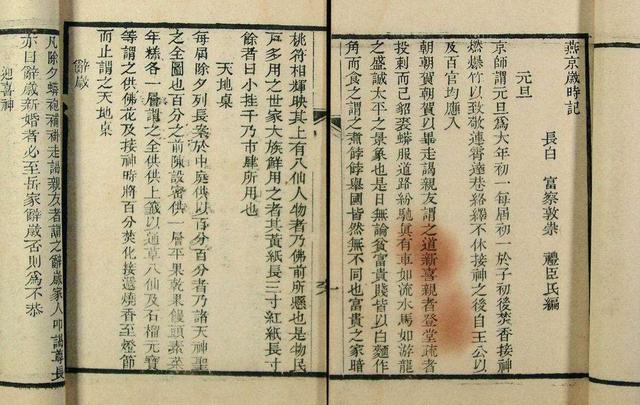 燕京歲時記
長白 富察敦崇 禮臣氏編
元旦
京師謂元旦爲大年初一每屆初一於子初後焚香接神
燃爆竹以致敬連霄達巷絡繹不休接神之後自王公以
及百官均應入
朝朝賀朝賀以畢走謁親友謂之道新喜親者登堂疏者
投刺而已貂裘蟒服道路紛馳真有車如流水馬如游龍
之盛誠太平之景象也是日無論貧富貴賤皆以白麵作
角而食之謂之煮餑餑舉國皆然無不同也富貴之家暗
桃符相輝映其上有八仙人物者乃佛前所懸也是物民
戶多用之世家大族鮮用之者其黃紙長三寸紅紙長寸
餘者曰小挂千乃市肆所用也
天地桌
每屆除夕列長案於中庭供以百分百分者乃諸天神聖
之全圖也百分之前陳設蜜供一層平果乾果饅頭素菜
年糕各一層謂之全供供上籤以通草八仙及石榴元寶
等謂之供佛花及接神時將百分焚化接遞燒香至燈節
而止謂之天地桌
辭歲
凡除夕蟒袍補褂走謁親友者謂之辭歲家人叩謁尊長
亦曰辭歲新婚者必至岳家辭歲否則爲不恭
迎喜神